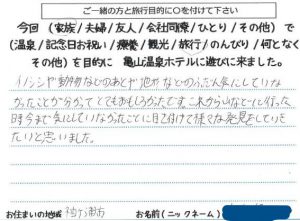 ご一緒の方と旅行目的に○を付けて下さい
今回 (家族/夫婦/友人/会社同僚/ひとり/その他)で
(温泉/記念日お祝い/療養/観光/旅行/のんびり/何となく
その他)を目的に 亀山温泉ホテルに遊びに来ました。
イノシシや動物などのあとや地かなどのふだん気にしていな
かったことが分かって とてもおもしろかったです。これから山などに行った
時今まで気にしていなかったことに目を付けて様々な発見をしていき
たいと思いました。
お住まいの地域 お名前(ニックネーム)